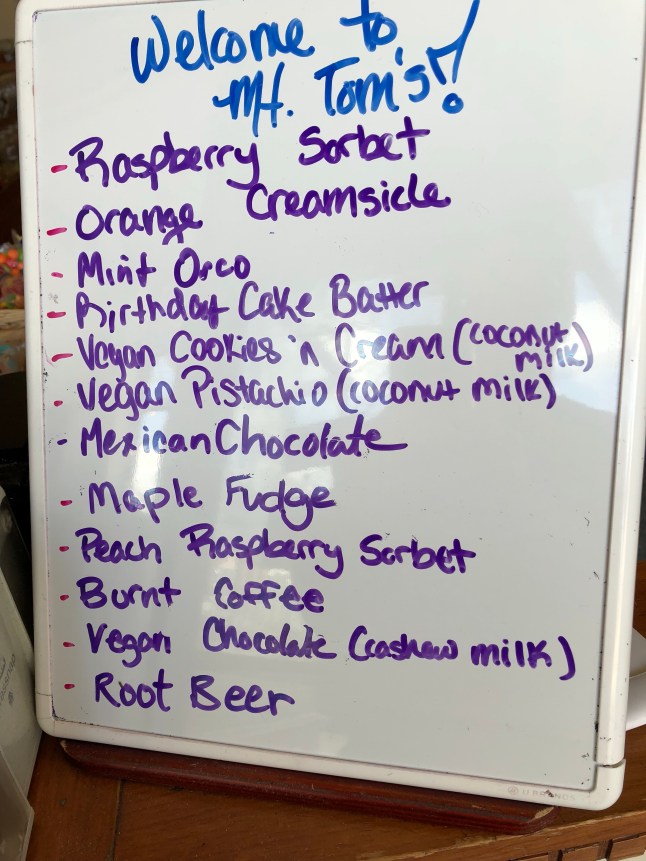 Welcome to
Mt. Tom's!
- Raspberry Sorbet
- Orange Creamsicle
- Mint Oreo
- Birthday Cake Batter
- Vegan Cookies 'n Cream (coconut
milk)
- Vegan Pistachio (coconut milk)
- Mexican Chocolate
- Maple Fudge
- Peach Raspberry Sorbet
- Burnt Coffee
- Vegan Chocolate (cashew milk)
- Root Beer
U BRANDS